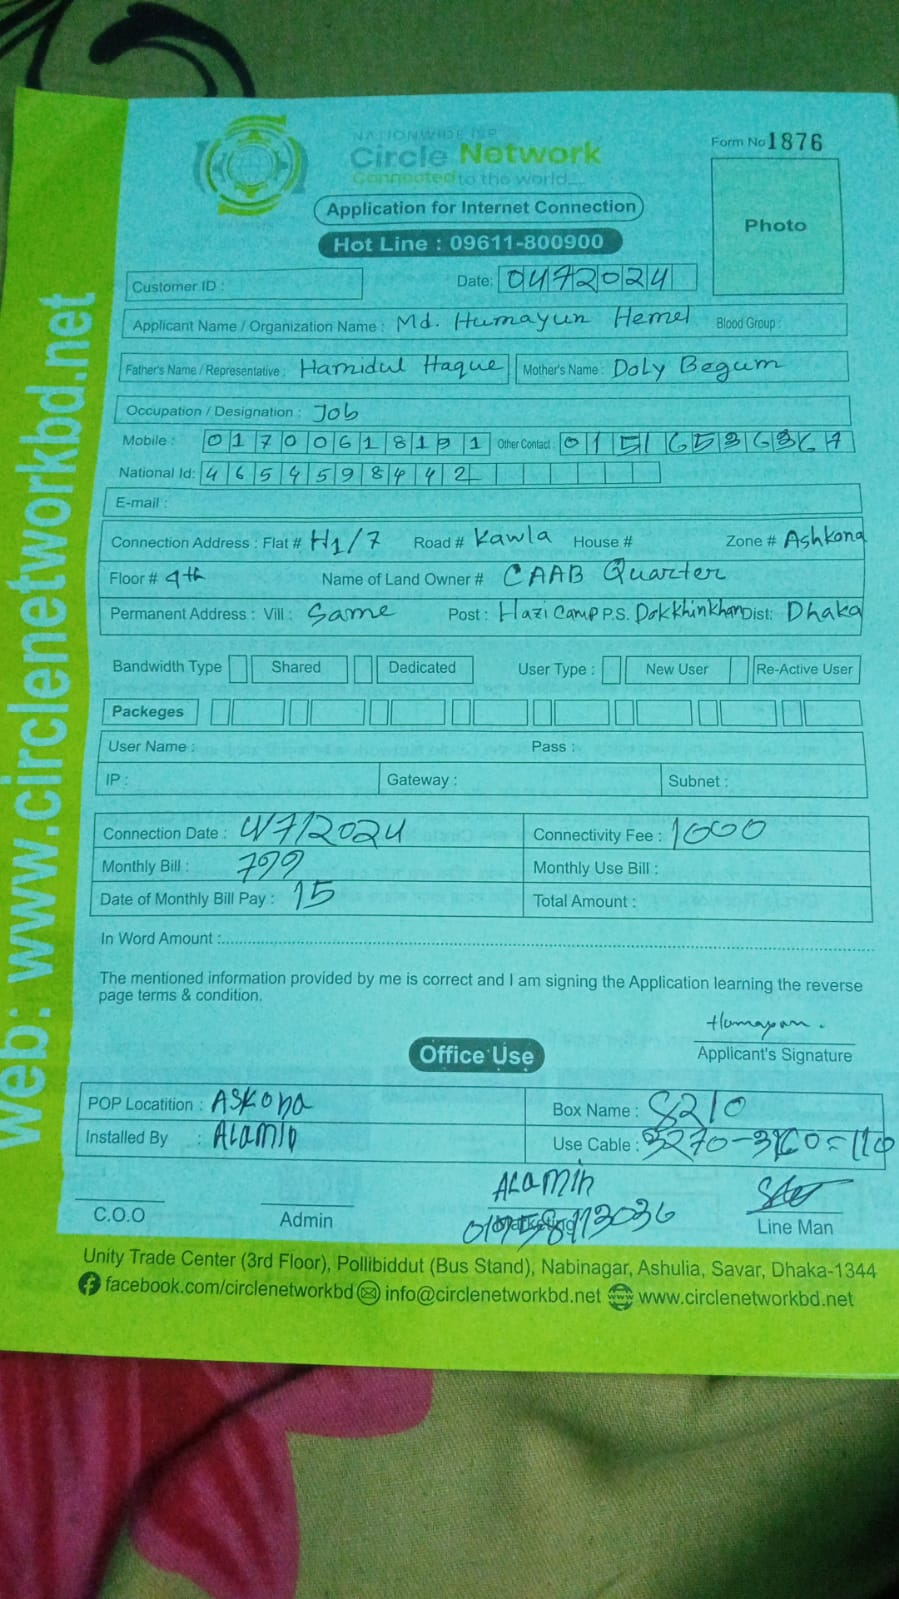 NATIONWIDE ISP
Circle Network
Connected to the world....
Form No 1876
Application for Internet Connection
Hot Line : 09611-800900
Photo
Customer ID :
Date: 0472024
Applicant Name / Organization Name : Md. Humayun Hemel Blood Group :
Father's Name / Representative : Hamidul Haque Mother's Name : Doly Begum
Occupation / Designation : Job
Mobile : 01700618191 Other Contact : 01516536367
National Id: 4654598442
E-mail :
Connection Address : Flat # H1/7 Road # Kawla House # Zone # Ashkona
Floor # 4th Name of Land Owner # CAAB Quarter
Permanent Address : Vill : Same Post : Hazi Camp P.S. Dakkhinkhan Dist: Dhaka
Bandwidth Type Shared Dedicated User Type : New User Re-Active User
Packeges
User Name : Pass :
IP : Gateway : Subnet :
Connection Date : 4/7/2024 Connectivity Fee : 1000
Monthly Bill : 799 Monthly Use Bill :
Date of Monthly Bill Pay : 15 Total Amount :
In Word Amount :
The mentioned information provided by me is correct and I am signing the Application learning the reverse
page terms & condition.
Humayun.
Applicant's Signature
Office Use
POP Locatition : Askona Box Name : 8210
Installed By : Alamin Use Cable : 3270-3160=110
Alamin
C.O.O Admin Marketing Line Man
Unity Trade Center (3rd Floor), Pollibiddut (Bus Stand), Nabinagar, Ashulia, Savar, Dhaka-1344
facebook.com/circlenetworkbd info@circlenetworkbd.net www.circlenetworkbd.net
web: www.circlenetworkbd.net